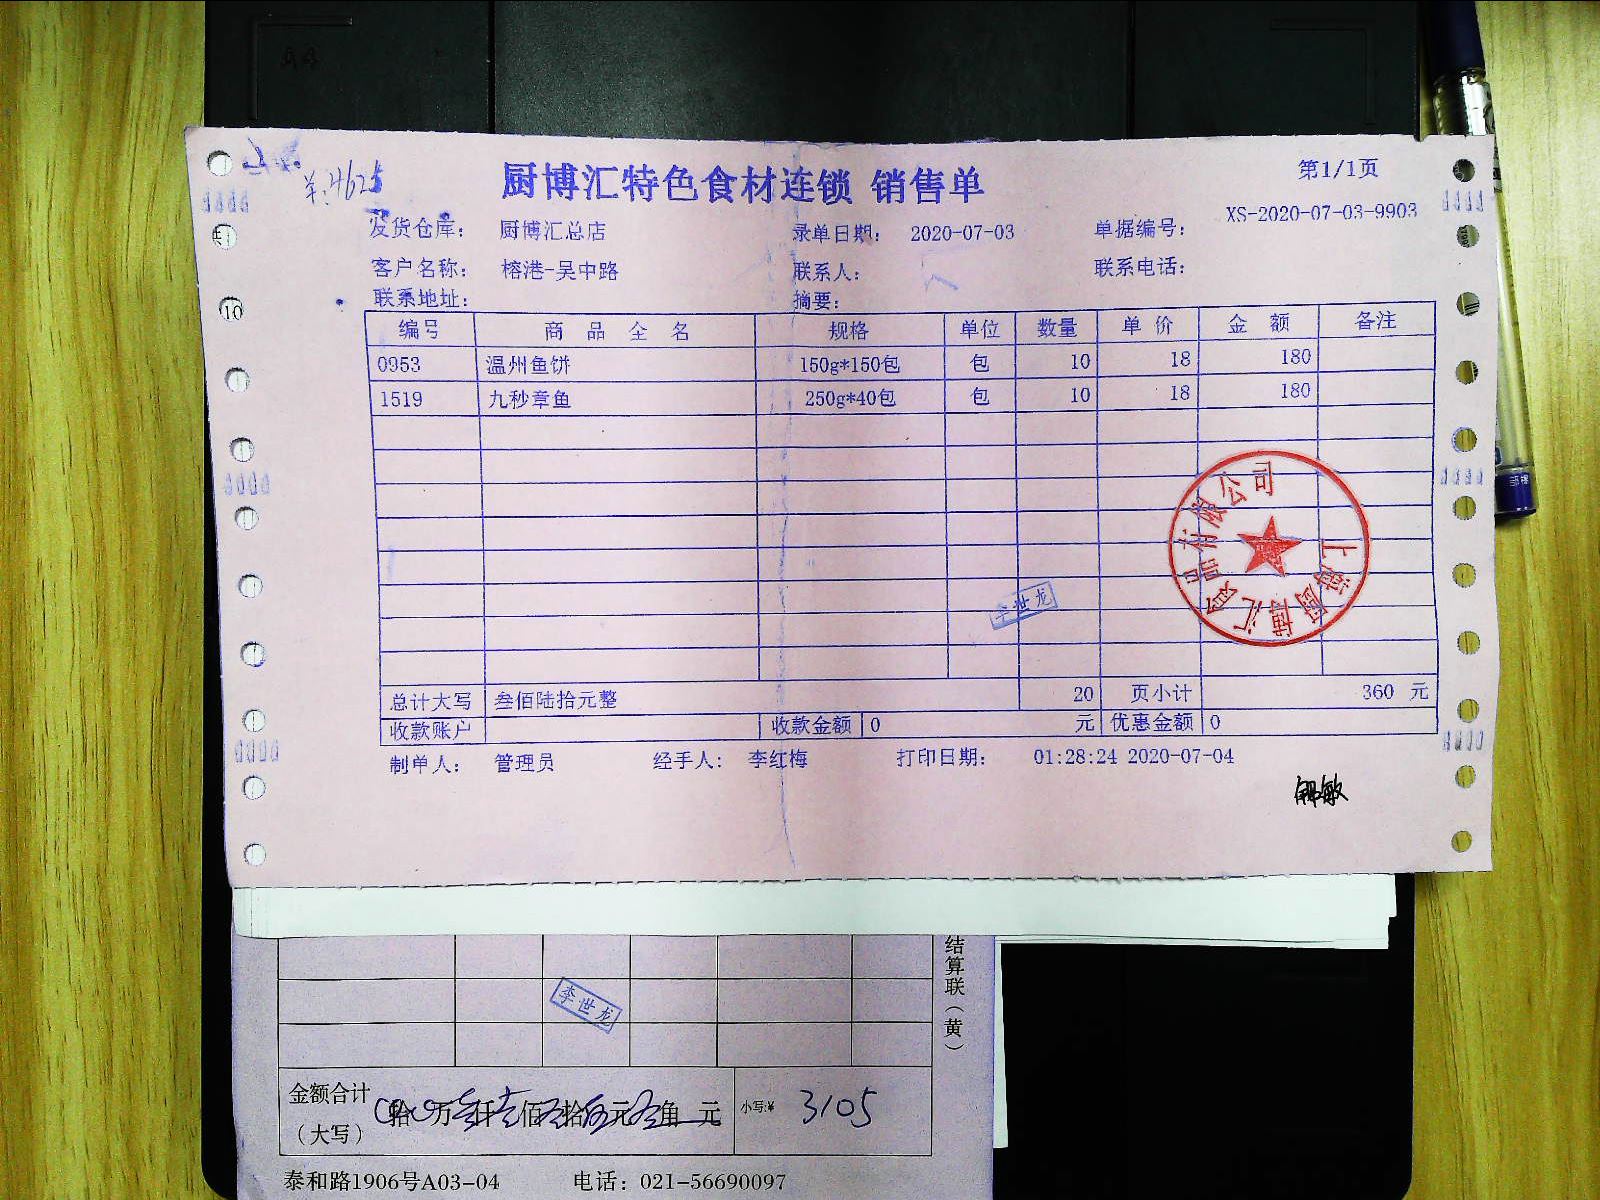 A4
4625
厨博汇特色食材连锁 销售单
第1/1页
发货仓库： 厨博汇总店
录单日期： 2020-07-03
单据编号： XS-2020-07-03-9903
客户名称： 榕港-吴中路
联系人：
联系电话：
联系地址：
摘要：
编号 商 品 全 名 规格 单位 数量 单 价 金 额 备注
0953 温州鱼饼 150g*150包 包 10 18 180
1519 九秒章鱼 250g*40包 包 10 18 180
上海厨博汇食品有限公司
李世龙
总计大写 叁佰陆拾元整 20 页小计 360 元
收款账户 收款金额 0 元 优惠金额 0
制单人： 管理员 经手人： 李红梅 打印日期： 01:28:24 2020-07-04
结算联（黄）
李世龙
金额合计（大写） 拾 万 仟 佰 拾 元 角 元 小写:¥ 3105
泰和路1906号A03-04 电话：021-56690097